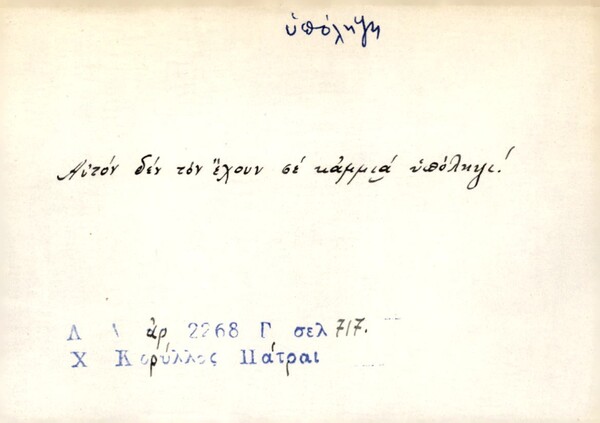 ὑπόληψη
Αὐτόν δέν τόν ἔχουν σέ κἀμμιά ὑπόληψι!
Λ Α ἀρ 2268 Γ σελ 717.
Χ Κορύλλος Πάτραι